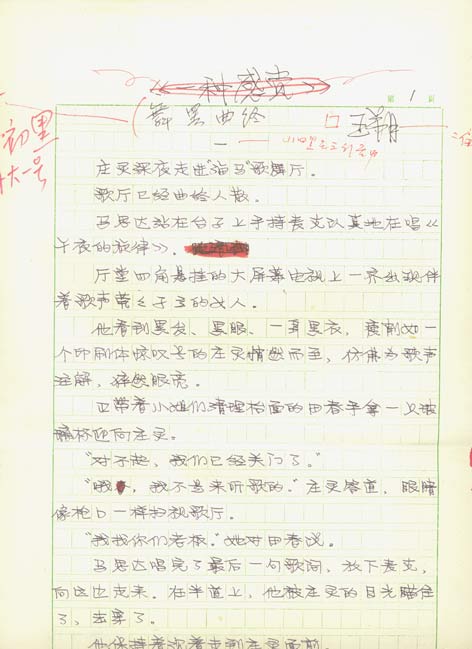 一种感觉
第 1 页
舞罢曲终
口 王朔
初黑
一
庄灵深夜走进"泊马"歌舞厅。
歌厅已经曲终人散。
马思达站在台子上手持麦克风真地在唱《
午夜的旋律》。
厅堂四角悬挂的大屏幕电视上一齐出现伴
着歌声
的女人。
他看到黑发、黑眼、一身黑衣,瘦削如一
个印刷体惊叹号的庄灵悄然而至,仿佛为歌声
注解,猝然眼亮。
正带着小姐们清理台面的田春手拿一
迎向庄灵。
"对不起,我们已经关门了。"
"哦,我不是来听歌的。"庄灵答道,眼睛
像枪口一样扫视歌厅。
"我找你们老板。"她对田春说。
马思达唱完了最后一句歌词,放下麦克,
向这边走来。在半道上,他被庄灵的目光瞄住
了,击穿了。
他保持着沉着走到庄灵面前